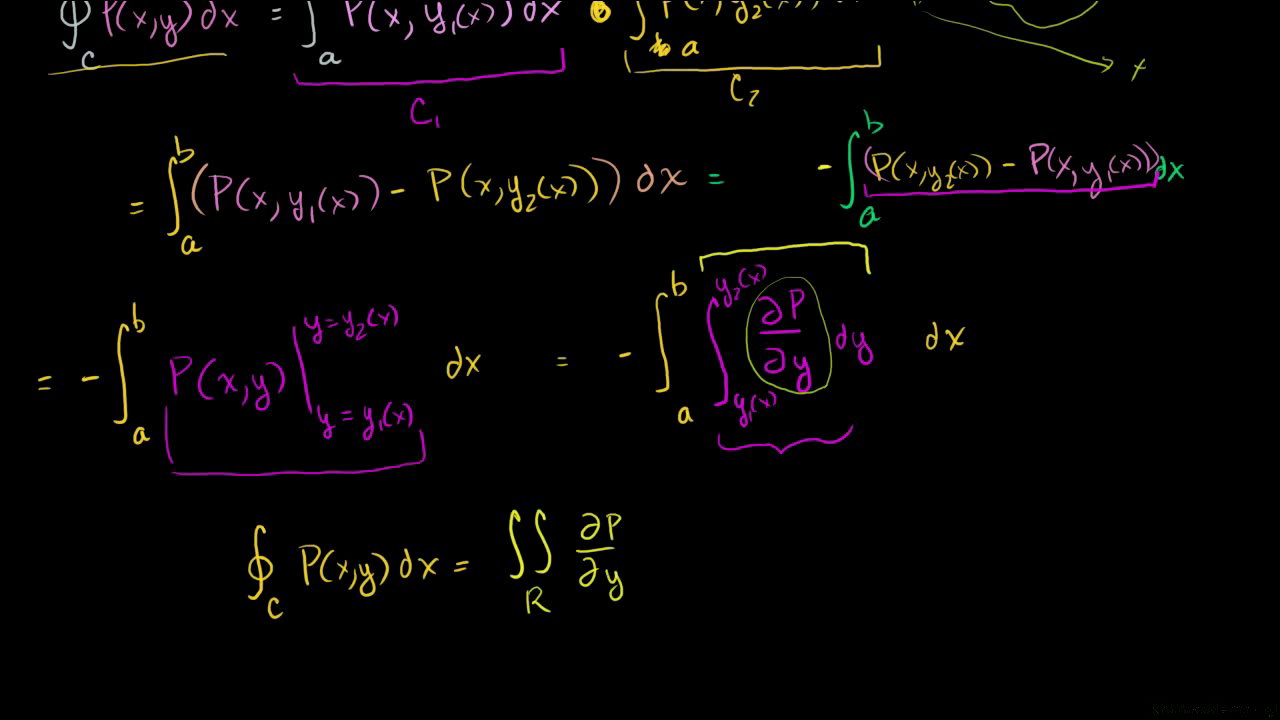 ∮_C P(x,y) dx = ∫_a P(x, y₁(x)) dx ∫_a P(x, y₂(x))
x
C₁ C₂
= ∫_a^b (P(x, y₁(x)) - P(x, y₂(x))) dx = - ∫_a^b (P(x, y₂(x)) - P(x, y₁(x))) dx
= - ∫_a^b P(x,y) |_{y = y₁(x)}^{y = y₂(x)} dx = - ∫_a^b ∫_{y₁(x)}^{y₂(x)} ∂P/∂y dy dx
∮_C P(x,y) dx = ∬_R ∂P/∂y